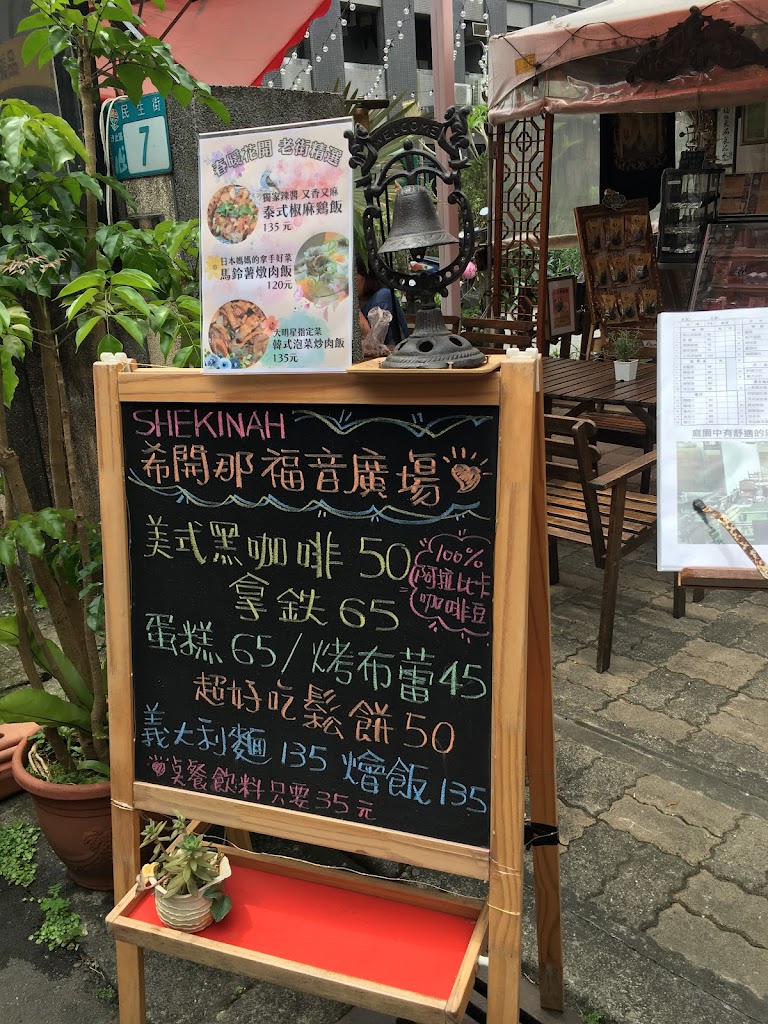 民生街
7
WELCOME
春暖花開 老街精選
獨家辣醬 又香又麻
泰式椒麻鷄飯
135元
日本媽媽的拿手好菜
馬鈴薯燉肉飯
120元
大明星指定菜
韓式泡菜炒肉飯
135元
SHEKINAH
希開那福音廣場
美式黑咖啡 50
100%
阿拉比卡
咖啡豆
拿鉄 65
蛋糕 65/烤布蕾 45
超好吃鬆餅 50
義大利麵 135 燴飯 135
桌餐飲料只要35元
庭園中有舒適的